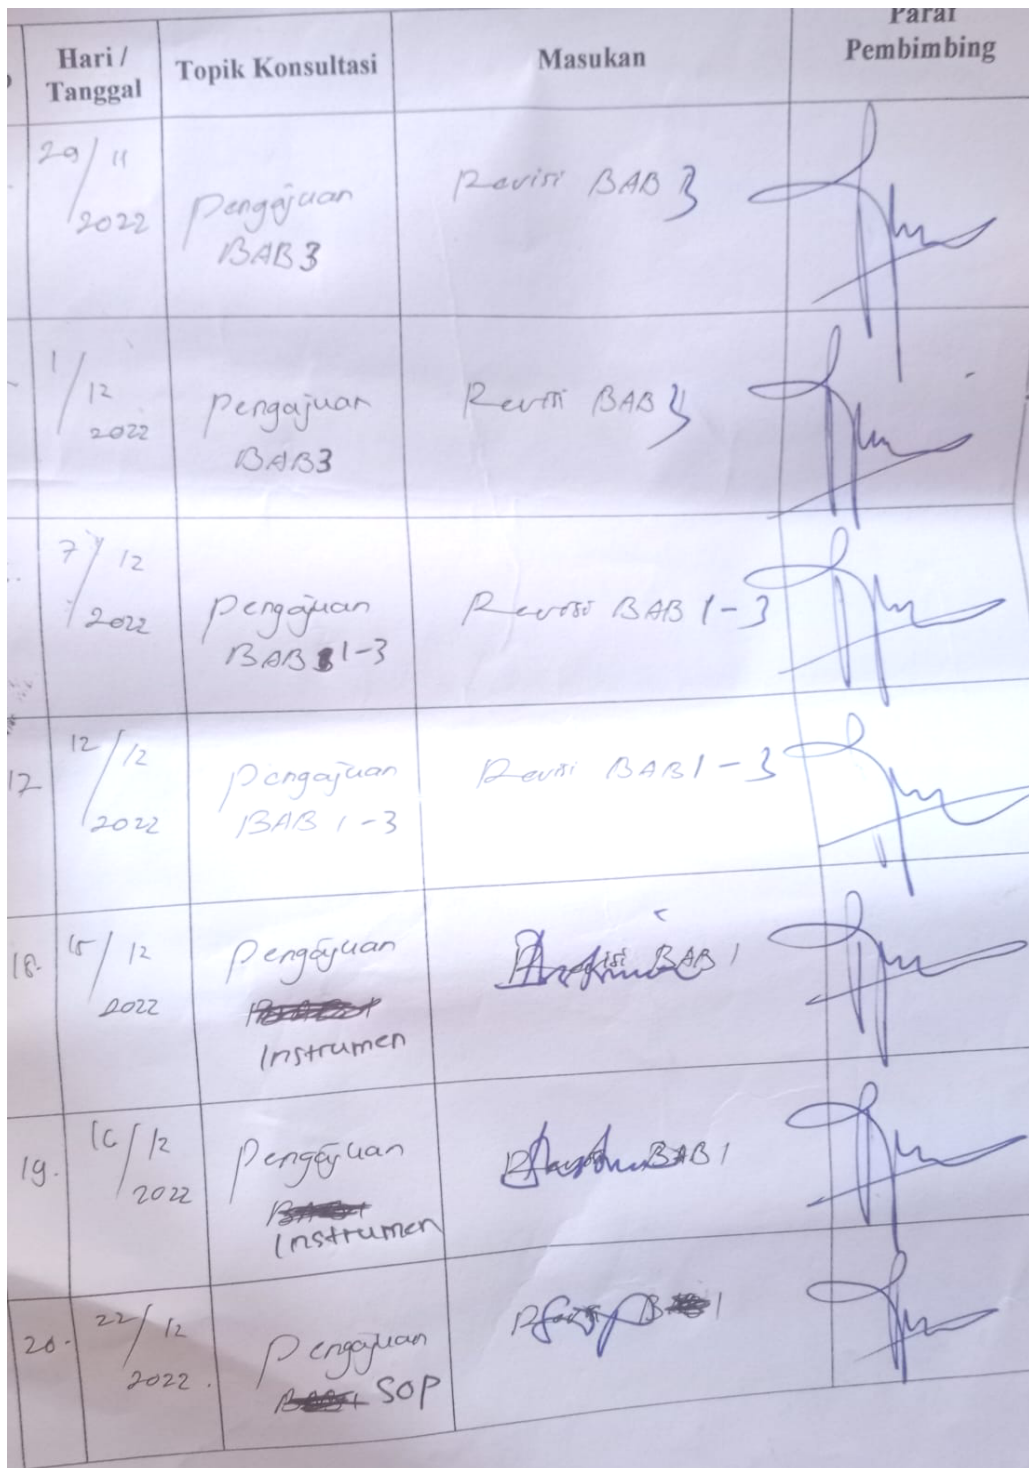 Hari /
Tanggal
Topik Konsultasi
Masukan
Paraf
Pembimbing
29/11
2022
Pengajuan
BAB 3
Revisi BAB 3
1/12
2022
Pengajuan
BAB 3
Revisi BAB 3
7/12
2022
Pengajuan
BAB 1-3
Revisi BAB 1-3
17
12/12
2022
Pengajuan
BAB 1-3
Revisi BAB 1-3
18.
15/12
2022
Pengajuan
Instrumen
BAB 1
19.
16/12
2022
Pengajuan
Instrumen
BAB 1
20.
22/12
2022.
Pengajuan
SOP